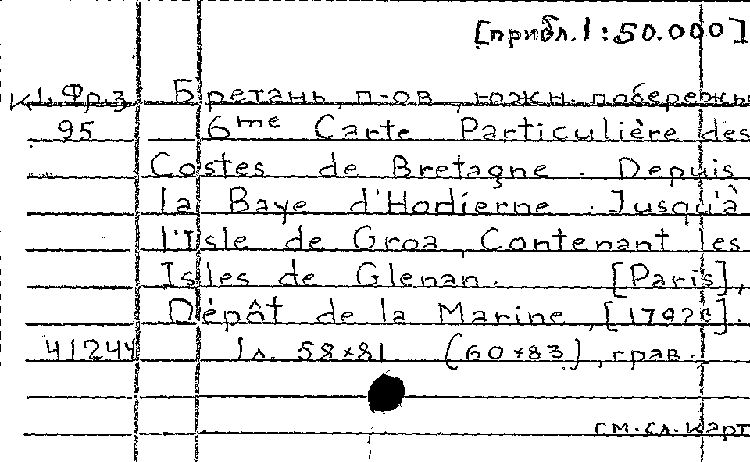 [прибл. 1:50.000]
К1.Фр.3 Бретань, п-ов, южн. побережь
95 6me Carte Particulière des
Costes de Bretagne. Depuis
la Baye d'Hodierne. Jusqu'à
l'Isle de Groa, Contenant les
Isles de Glenan. [Paris],
Dépôt de la Marine,
41244 1л. 58×81 (60×83), грав.
см. сл. карт